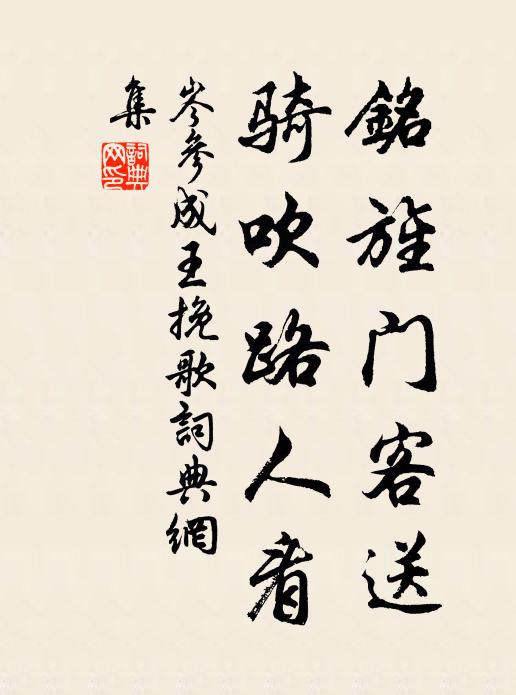 銘旌门客送
騎吹路人看
岑参成王挽歌詞典網
集
詞典
网印